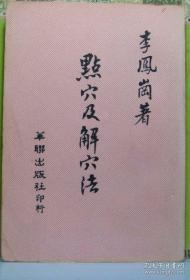 李鳳崗著
點穴及解穴法
華聯出版社印行